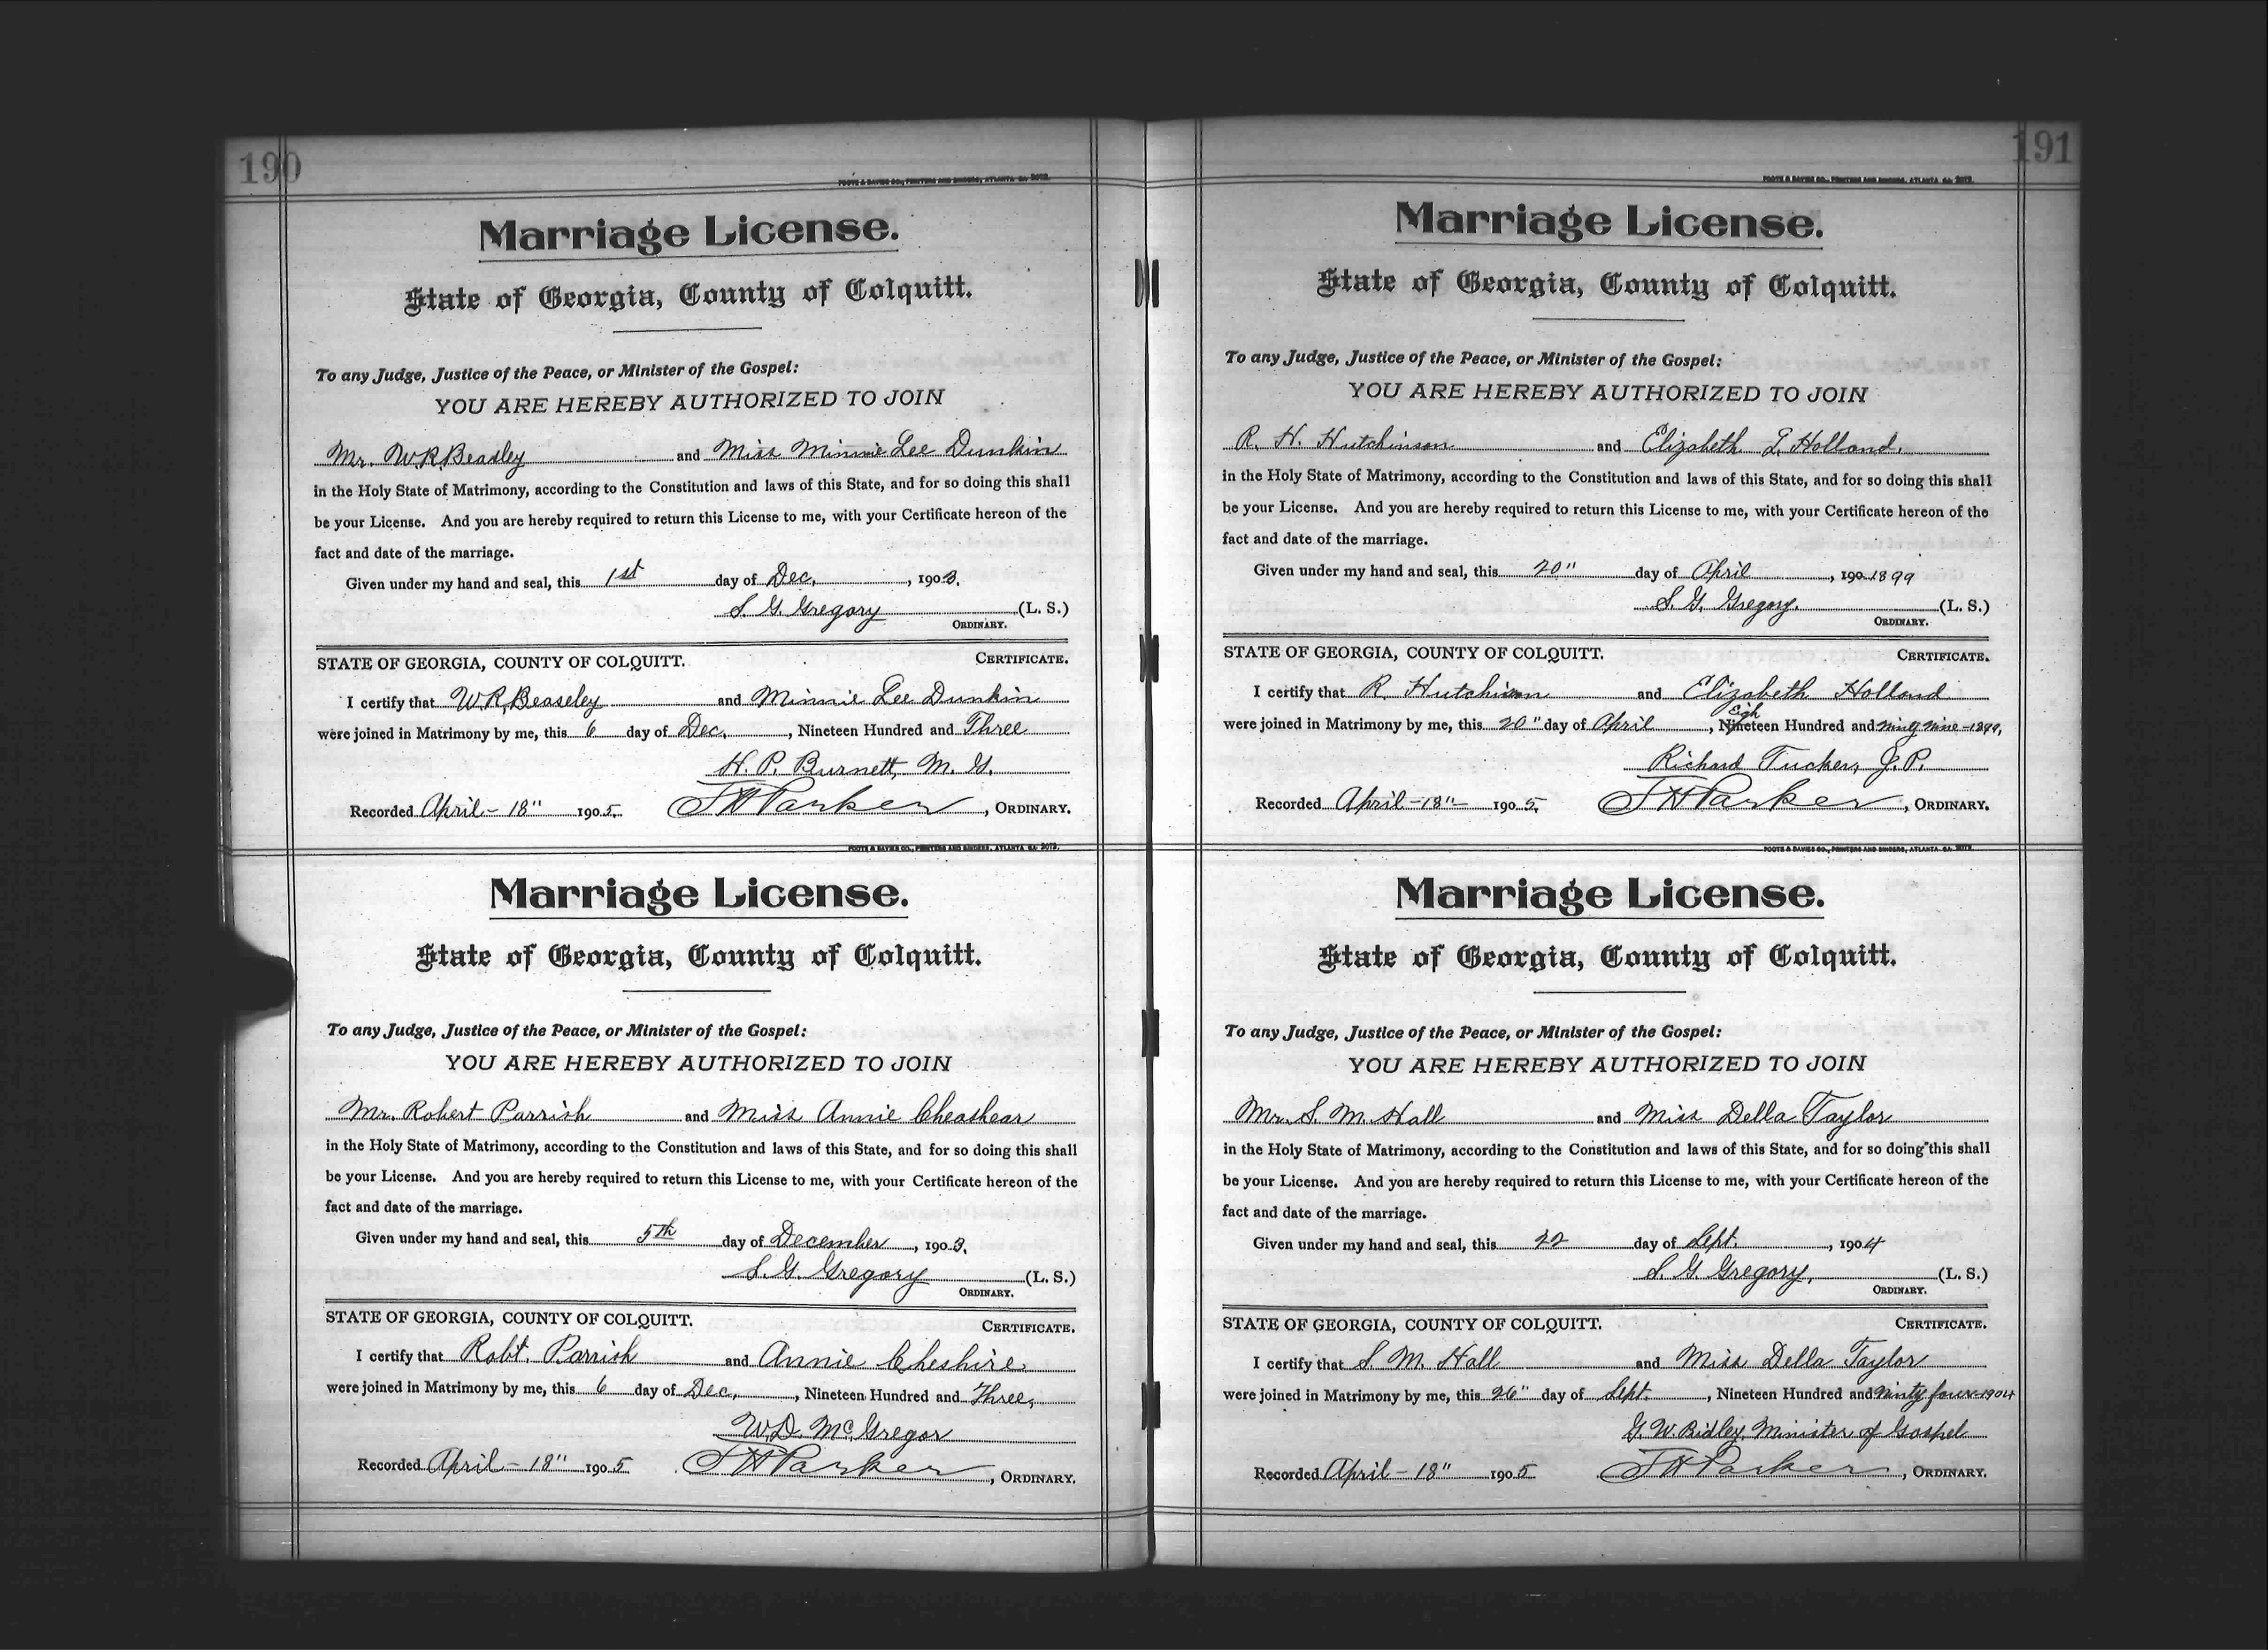 190
FOOTE & DAVIES CO., PRINTERS AND BINDERS, ATLANTA, GA. 2072.
Marriage License.
State of Georgia, County of Colquitt.
To any Judge, Justice of the Peace, or Minister of the Gospel:
YOU ARE HEREBY AUTHORIZED TO JOIN
Mr. W R Beasley and Miss Minnie Lee Dunkin
in the Holy State of Matrimony, according to the Constitution and laws of this State, and for so doing this shall
be your License. And you are hereby required to return this License to me, with your Certificate hereon of the
fact and date of the marriage.
Given under my hand and seal, this 1st day of Dec, , 1903.
S. G. Gregory (L. S.)
ORDINARY.
STATE OF GEORGIA, COUNTY OF COLQUITT. CERTIFICATE.
I certify that W. R. Beaseley and Minnie Lee Dunkin
were joined in Matrimony by me, this 6 day of Dec, , Nineteen Hundred and Three
H. P. Burnett, M. G.
Recorded April - 18" 1905. J H Parker , ORDINARY.
FOOTE & DAVIES CO., PRINTERS AND BINDERS, ATLANTA, GA. 2072.
Marriage License.
State of Georgia, County of Colquitt.
To any Judge, Justice of the Peace, or Minister of the Gospel:
YOU ARE HEREBY AUTHORIZED TO JOIN
Mr. Robert Parrish and Miss Annie Cheashear
in the Holy State of Matrimony, according to the Constitution and laws of this State, and for so doing this shall
be your License. And you are hereby required to return this License to me, with your Certificate hereon of the
fact and date of the marriage.
Given under my hand and seal, this 5th day of December , 1903,
S. G. Gregory (L. S.)
ORDINARY.
STATE OF GEORGIA, COUNTY OF COLQUITT. CERTIFICATE.
I certify that Robt. Parrish and Annie Cheshire,
were joined in Matrimony by me, this 6 day of Dec, , Nineteen Hundred and Three,
W. D. McGregor
Recorded April - 18" 1905 J H Parker , ORDINARY.
191
FOOTE & DAVIES CO., PRINTERS AND BINDERS, ATLANTA, GA. 2072.
Marriage License.
State of Georgia, County of Colquitt.
To any Judge, Justice of the Peace, or Minister of the Gospel:
YOU ARE HEREBY AUTHORIZED TO JOIN
R. H. Hutchinson and Elizabeth L. Holland.
in the Holy State of Matrimony, according to the Constitution and laws of this State, and for so doing this shall
be your License. And you are hereby required to return this License to me, with your Certificate hereon of the
fact and date of the marriage.
Given under my hand and seal, this 20" day of April , 190 1899
S. G. Gregory. (L. S.)
ORDINARY.
STATE OF GEORGIA, COUNTY OF COLQUITT. CERTIFICATE.
I certify that R. Hutchinson and Elizabeth Holland
were joined in Matrimony by me, this 20" day of April , Eigh Nineteen Hundred and Ninty Nine - 1899,
Richard Tucker, J. P.
Recorded April - 18" 1905. J H Parker , ORDINARY.
FOOTE & DAVIES CO., PRINTERS AND BINDERS, ATLANTA, GA. 2072.
Marriage License.
State of Georgia, County of Colquitt.
To any Judge, Justice of the Peace, or Minister of the Gospel:
YOU ARE HEREBY AUTHORIZED TO JOIN
Mr. S. M. Hall and Miss Della Taylor
in the Holy State of Matrimony, according to the Constitution and laws of this State, and for so doing this shall
be your License. And you are hereby required to return this License to me, with your Certificate hereon of the
fact and date of the marriage.
Given under my hand and seal, this 22 day of Sept. , 1904
S. G. Gregory, (L. S.)
ORDINARY.
STATE OF GEORGIA, COUNTY OF COLQUITT. CERTIFICATE.
I certify that S. M. Hall and Miss Della Taylor
were joined in Matrimony by me, this 26" day of Sept. , Nineteen Hundred and Ninty four - 1904
G. W. Ridley, Minister of Gospel
Recorded April - 18" 1905 J H Parker , ORDINARY.